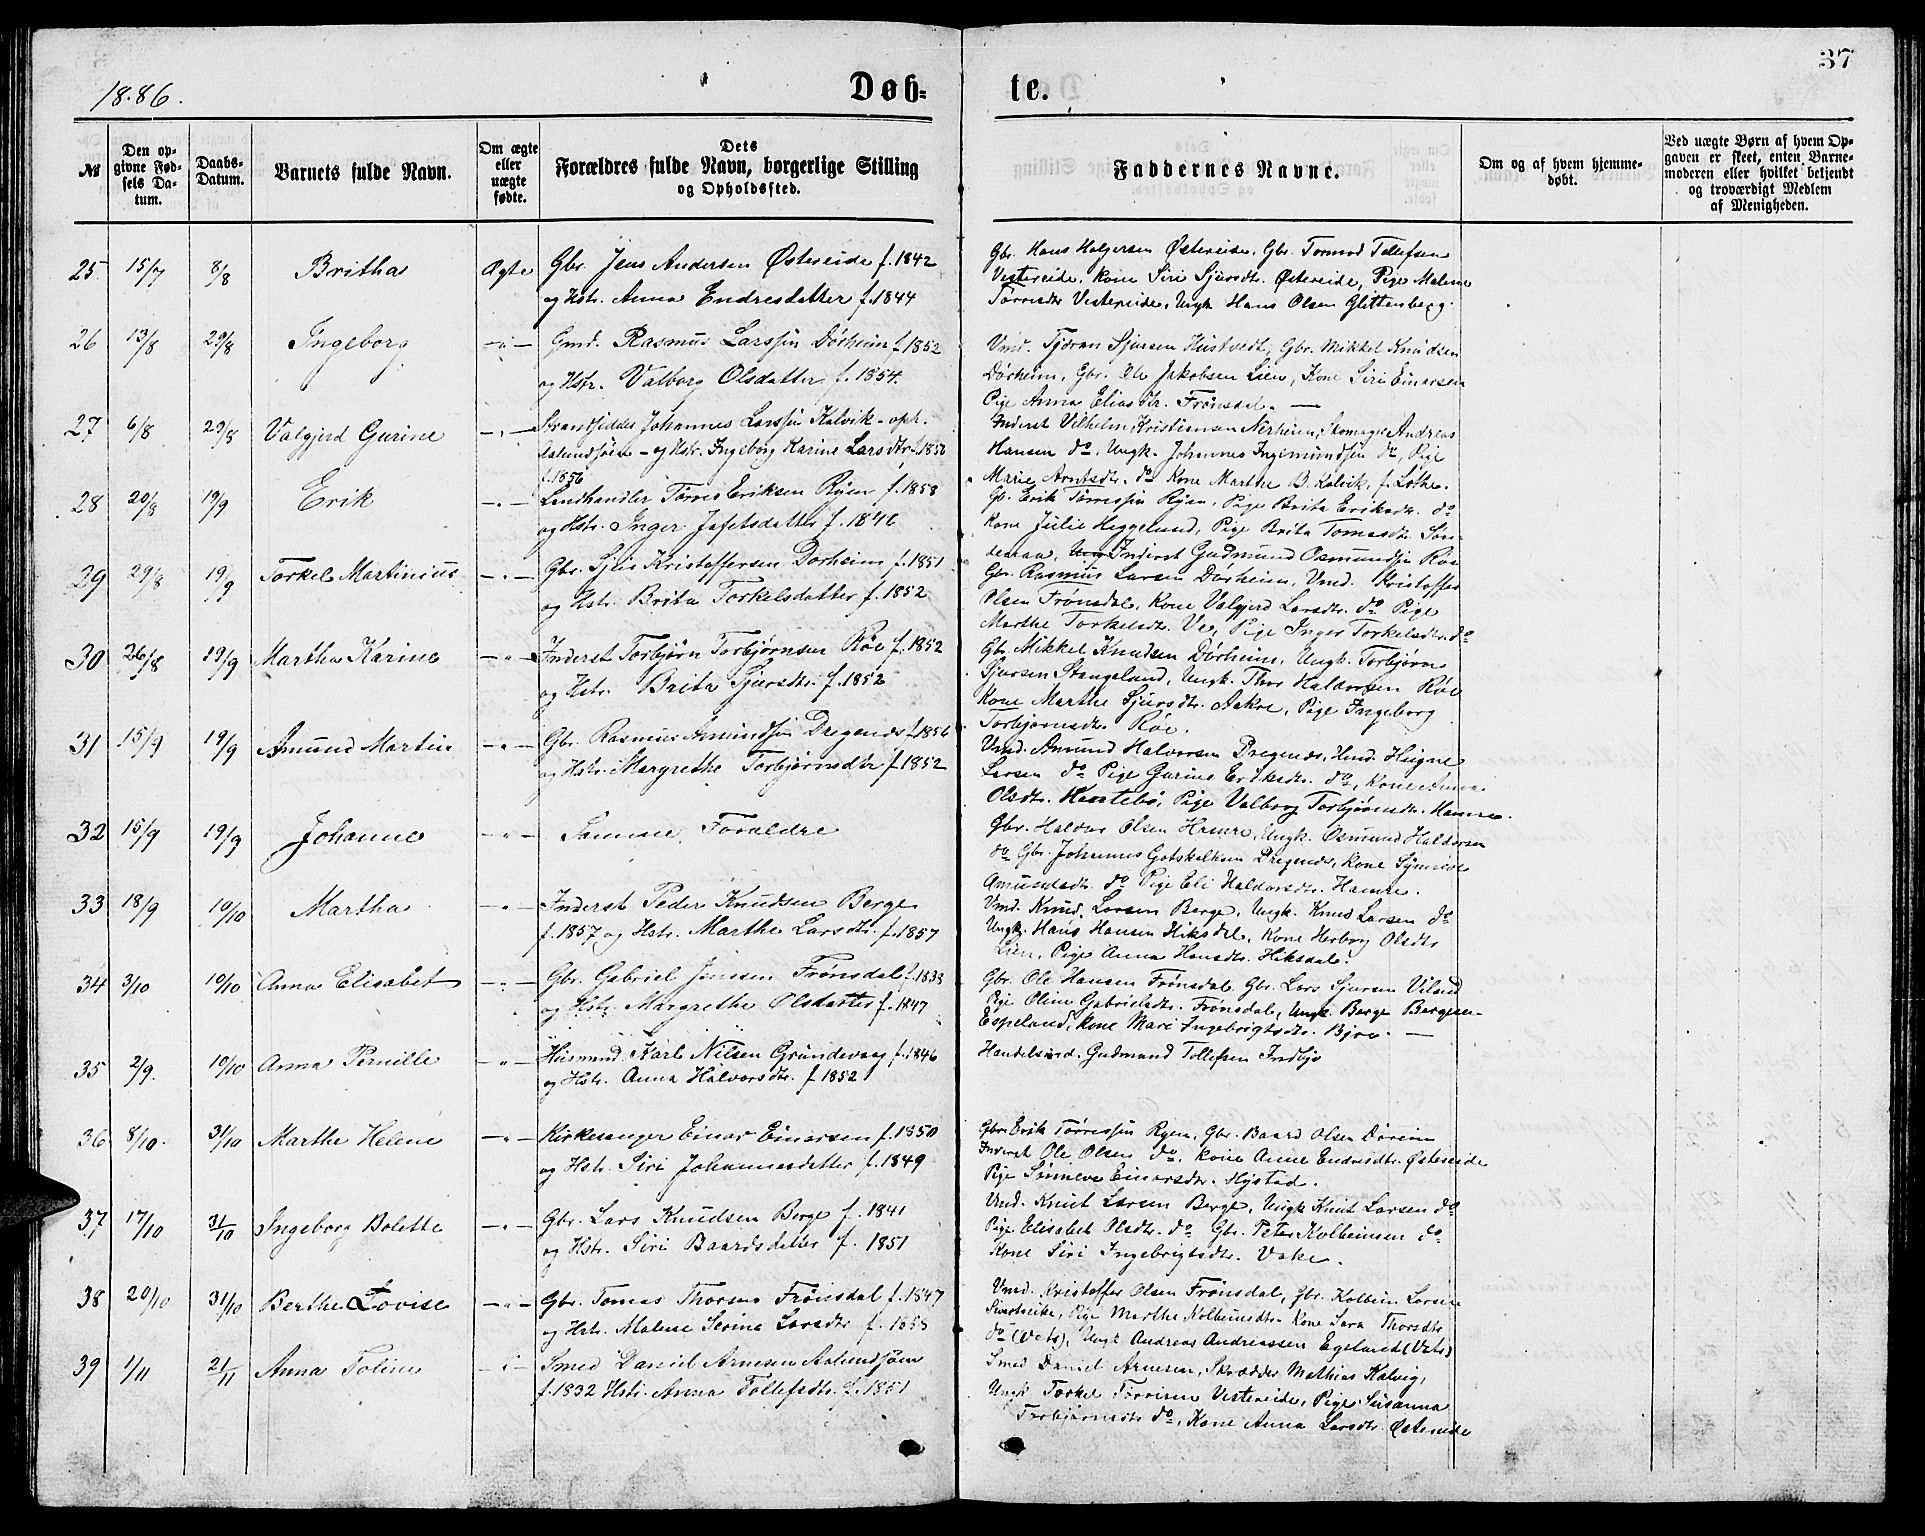 37
18.86.
Døb-
te.
№
Den op-
givne Fød-
sels Da-
tum.
Daabs-
Datum.
Barnets fulde Navn.
Om ægte
eller
uægte
fødte.
Dets
Forældres fulde Navn, borgerlige Stilling
og Opholdssted.
Faddernes Navne.
Om og af hvem hjemme-
døbt.
Ved uægte Børn af hvem Op-
gaven er skeet, enten Barne-
moderen eller hvilket bekjendt
og troværdigt Medlem
af Menigheden.
25 15/7 8/8 Britha Ægte Gbr. Jens Andersen Østereide f. 1842
og Hstr. Anna Endresdatter f. 1844
Gbr. Hans Holgersen Østereide, Gbr. Tormod Tollefsen
Vestereide, Kone Siri Sjursdtr. Østereide, Pige Malene
Tørrisdtr Vestereide, Ungk. Hans Olsen Glittenberg.
26 13/8 29/8 Ingeborg -"- Gmd. Rasmus Larssen Dørheim f. 1852
og Hstr. Valborg Olsdatter f. 1854.
Vmd. Sjursen Hustvedt, Gbr. Mikkel Knudsen
Dørheim, Gbr. Ole Jakobsen Lien, Kone Siri Einarsen
Pige Anna Eliasdtr. Frønsdal. —
27 6/8 29/8 Valgjerd Gurine -"- Strandsidder Johannes Larssen Kalvik - oph.
Aalundsøen - og Hstr. Ingeborg Karine Larsdtr. f. 1856
f. 1856
Inderst Vilhelm Kristiansen Nerheim, Skomager Andreas
Hansen do, Ungk. Johannes Ingemundsen do, Pige
Marie Arntsdtr. do Kone Marthe B. Kalvik, f. Lothe.
28 20/8 19/9 Erik -"- Landhandler Tørres Eriksen Ryen f. 1858
og Hstr. Inger Jafetsdatter f. 1846
Gb. Erik Tørressen Ryen, Pige Brita Eriksdtr. do
Kone Julie Heggelund, Pige Brita Tomasdtr. Søn-
denaa, Inderst Gudmund Osmundsen Røe
29 29/8 19/9 Torkel Martinius -"- Gbr. Kristoffersen Dorheim f. 1851
og Hstr. Brita Torkelsdatter f. 1852
Gbr. Rasmus Larsen Dørheim, Vmd. Kristoffer
Olsen Frønsdal, Kone Valgjerd Larsdtr. do Pige
Marthe Torkelsdtr. Ve, Pige Inger Torkelsdtr. do
30 26/8 19/9 Martha Karine -"- Inderst Torbjørn Torbjørnsen Røe f. 1852
og Hstr. Brita Sjursdtr. f. 1852
Gbr. Mikkel Knudsen Dørheim, Ungk. Torbjørn
Sjursen Stangeland, Ungk. Thor Haldorsen Røe
Kone Marthe Sjursdtr. Aakre, Pige Ingeborg
Torbjørnsdtr. Røe.
31 15/9 19/9 Amund Martin -"- Gbr. Rasmus Amundsen Dregenes f. 1856
og Hstr. Margrethe Torbjørnsdtr f. 1852
Vmd. Amund Halvorsen Dregenes, Hugne
Larsen do Pige Gurine Eriksdtr. do, Kone Anna
Olsdtr. Haartebø, Pige Valborg Torbjørnsdtr. Hamre.
32 15/9 19/9 Johanne -"- Samme Forældre
Gbr. Haldor Olsen Hamre, Ungk. Osmund Haldorsen
do Gbr. Johannes Gotskalksen Dregenes, Kone
Amundsdtr. do Pige Eli Haldorsdtr. Hamre.
33 18/9 10/10 Martha -"- Inderst Peder Knudsen Berge
f. 1857 og Hstr. Marthe Larsdtr. f. 1857
Vmd. Knud Larsen Berge, Ungk. Knud Larsen do
Ungk. Hans Hansen Hiksdal, Kone Herborg Olsdtr
Lien, Pige Anna Hansdtr. Hiksdal.
34 3/10 10/10 Anna Elisabet -"- Gbr. Gabriel Jensen Frønsdal f. 1833
og Hstr. Margrethe Olsdatter f. 1847
Gbr. Ole Hansen Frønsdal, Gbr. Lars Sjursen Viland
Pige Oline Gabrielsdtr. Frønsdal, Ungk. Berge Bergesen
Espeland, Kone Mari Ingebrigtsdtr. Bjoe. —
35 2/9. 10/10 Anna Pernille -"- Husmnd. Karl Nilsen Grundevaag f. 1846
og Hstr. Anna Halvorsdtr. f. 1852
Handelsmd. Gudmund Tollefsen Indbjo
36 8/10. 31/10 Marthe Helene -"- Kirkesanger Einar Einarsen f. 1850
og Hstr. Siri Johannesdatter f. 1849
Gbr. Erik Tørressen Ryen, Gbr. Baard Olsen Døreim
Inderst Ole Olsen do, Kone Anne Endresdtr. Østereide
Pige Sønneve Einarsdtr. Hystad.
37 17/10 31/10 Ingeborg Bolette -"- Gbr. Lars Knudsen Berge f. 1841
og Hstr. Siri Baardsdatter f. 1851
Vmd. Knut Larsen Berge, Ungk Knut Larsen do
Pige Elisabet Olsdtr. do Gbr. Peter Kolbeinsen do
Kone Siri Ingebrigtsdtr. Vake.
38 20/10 31/10 Berthe Lovise -"- Gbr. Tomas Thorsen Frønsdal f. 1847
og Hstr. Malene Serine Larsdtr f. 1858
Vmd. Kristoffer Olsen Frønsdal, Gbr. Kolbein Larsen
Svartveite, Pige Marthe Kolbeinsdtr. Kone Sara Thorsdtr
do (Vats), Ungk Andreas Andreassen Egeland (Vats)
39 1/11 21/11 Anna Toline -"- Smed Daniel Arnesen Aalundsøen
f. 1832 Hstr. Anna Tollefsdtr. f. 1851
Smed Daniel Arnesen, Skrædder Mathias Kalvig,
Ungk Torkel Tørrisen Vestereide, Pige Susanna
Torbjørnsdtr do, Kone Anna Larsdtr. Østereide